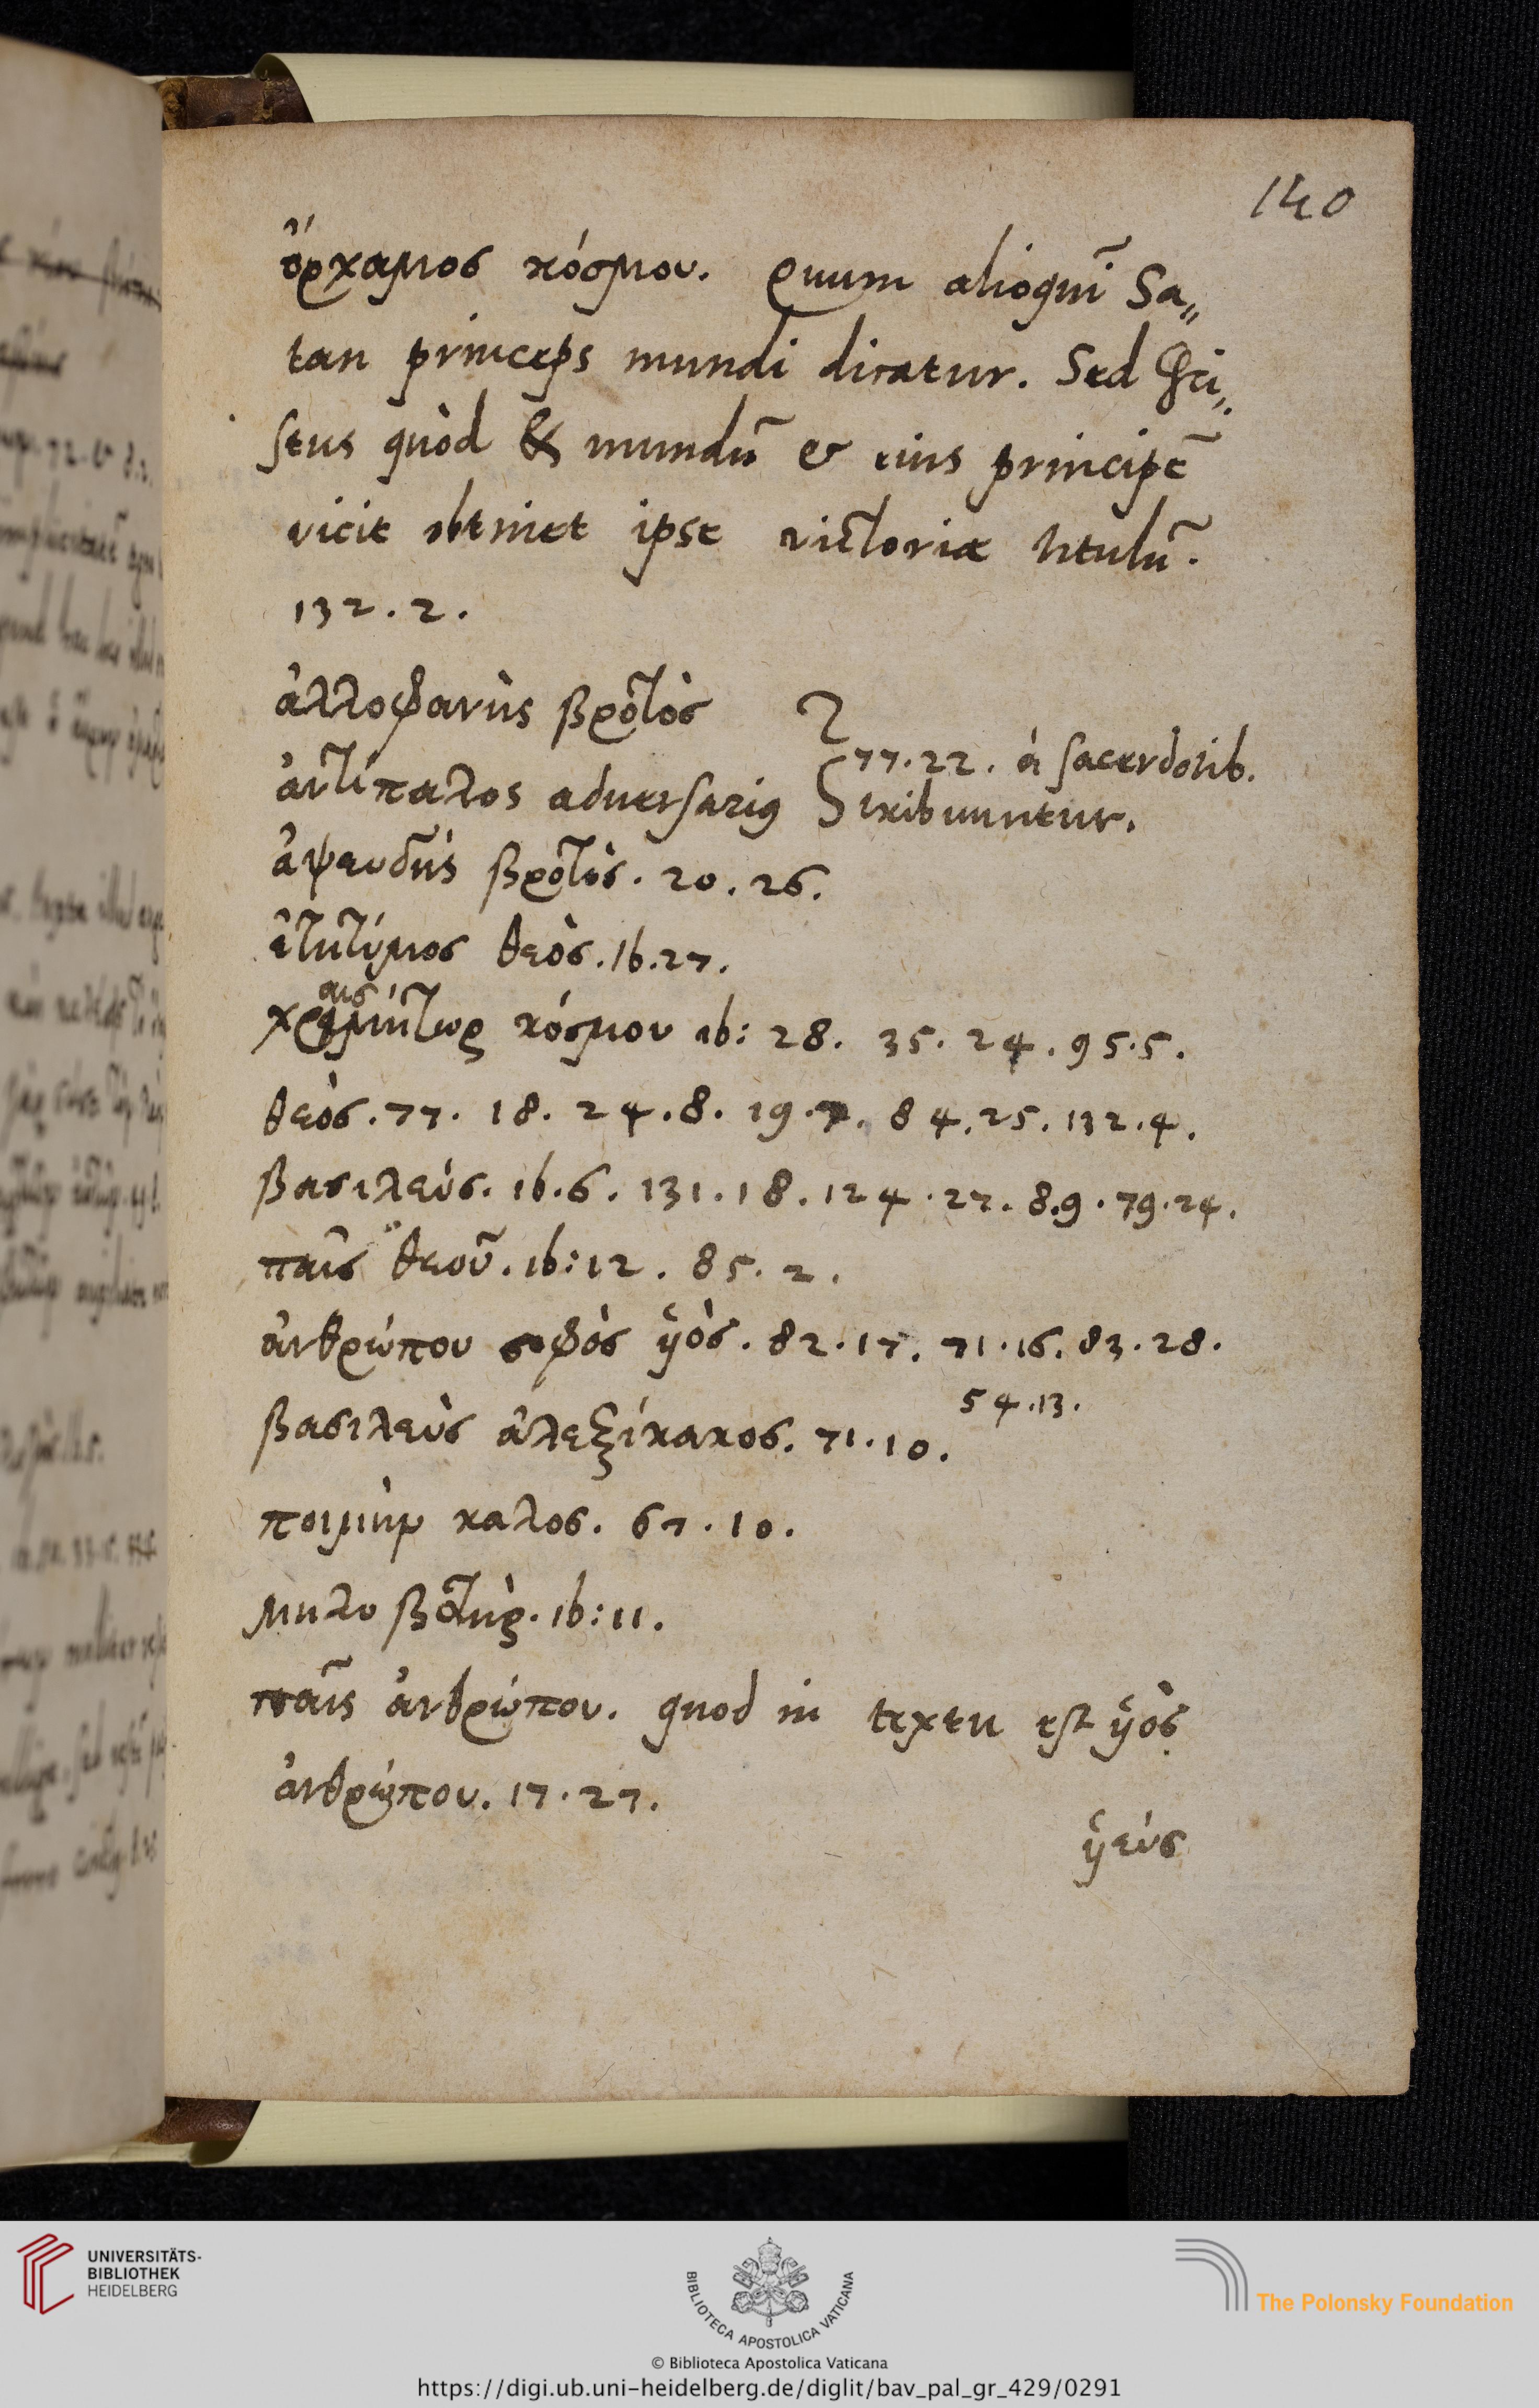 140
ὄρχαμος κόσμου. Quum alioqui Sa„
tan princeps mundi dicatur. Sed Chri„
stus quòd & mundū & eius principē
vicit obtinet ipse victoriæ titulū.
132.2.
ἀλλοφανὴς βροτὸς
ἀντίπαλος adversarius 77.22. à sacerdotib.
tribuuntur.
ἀψευδὴς βροτὸς. 20.26.
ἐτήτυμος θεὸς. ib. 27.
κόσμου ib: 28. 35. 24. 95.5.
θεὸς. 77. 18. 24.8. 19.7. 84.25. 132.4.
βασιλεύς. ib. 6. 131. 18. 124. 27. 8.9. 79.24.
παῖς θεοῦ. ib: 12. 85. 2.
ἀνθρώπου σοφὸς ὑὸς. 82.17. 71.16. 83.28.
54.13.
βασιλεὺς ἀλεξίκακος. 71.10.
ποιμὴν καλος. 67.10.
μηλοβοτὴρ. ib: 11.
παῖς ἀνθρώπου. quod in textu est ὑὸς
ἀνθρώπου. 17.27.
ὑεύς
UNIVERSITÄTS-
BIBLIOTHEK
HEIDELBERG
BIBLIOTECA APOSTOLICA VATICANA
The Polonsky Foundation
© Biblioteca Apostolica Vaticana
https://digi.ub.uni-heidelberg.de/diglit/bav_pal_gr_429/0291